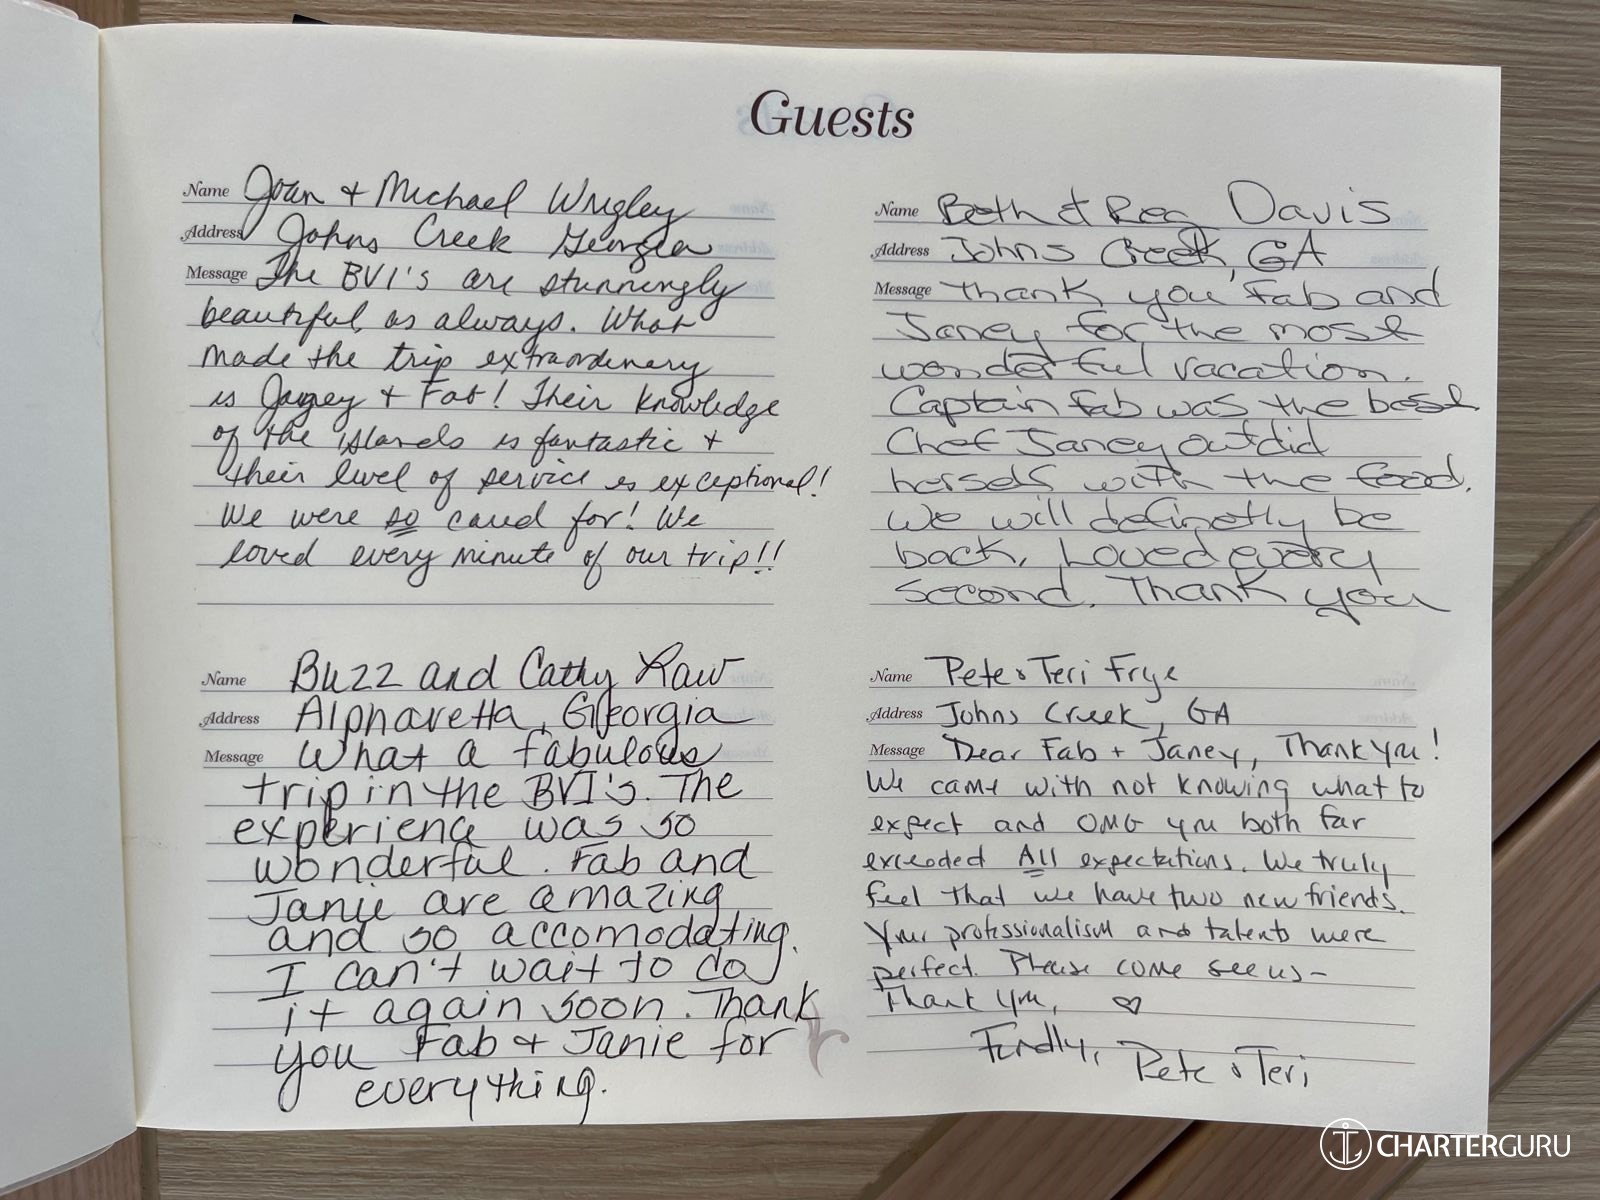 Guests
Name Joan + Michael Wrigley
Address Johns Creek Georgia
Message The BVI's are stunningly
beautiful, as always. What
made the trip extraordinary
is Janey + Fab! Their knowledge
of the islands is fantastic +
their level of service is exceptional!
We were so cared for! We
loved every minute of our trip!!
Name Beth & Reg Davis
Address Johns Creek, GA
Message Thank you Fab and
Janey for the most
wonderful vacation.
Captain Fab was the best
Chef Janey outdid
herself with the food.
We will definetly be
back. Loved every
second. Thank you
Name Buzz and Cathy Law
Address Alpharetta, Georgia
Message What a fabulous
trip in the BVI's. The
experience was so
wonderful. Fab and
Janie are amazing
and so accomodating.
I can't wait to do
it again soon. Thank
you Fab + Janie for
everything.
Name Pete & Teri Frye
Address Johns Creek, GA
Message Dear Fab + Janey, Thank you!
We came with not knowing what to
expect and OMG you both far
exceeded All expectations. We truly
feel that we have two new friends.
Your professionalism and talents were
perfect. Please come see us-
Thank you, ♡
Fondly,
Pete & Teri
CHARTERGURU